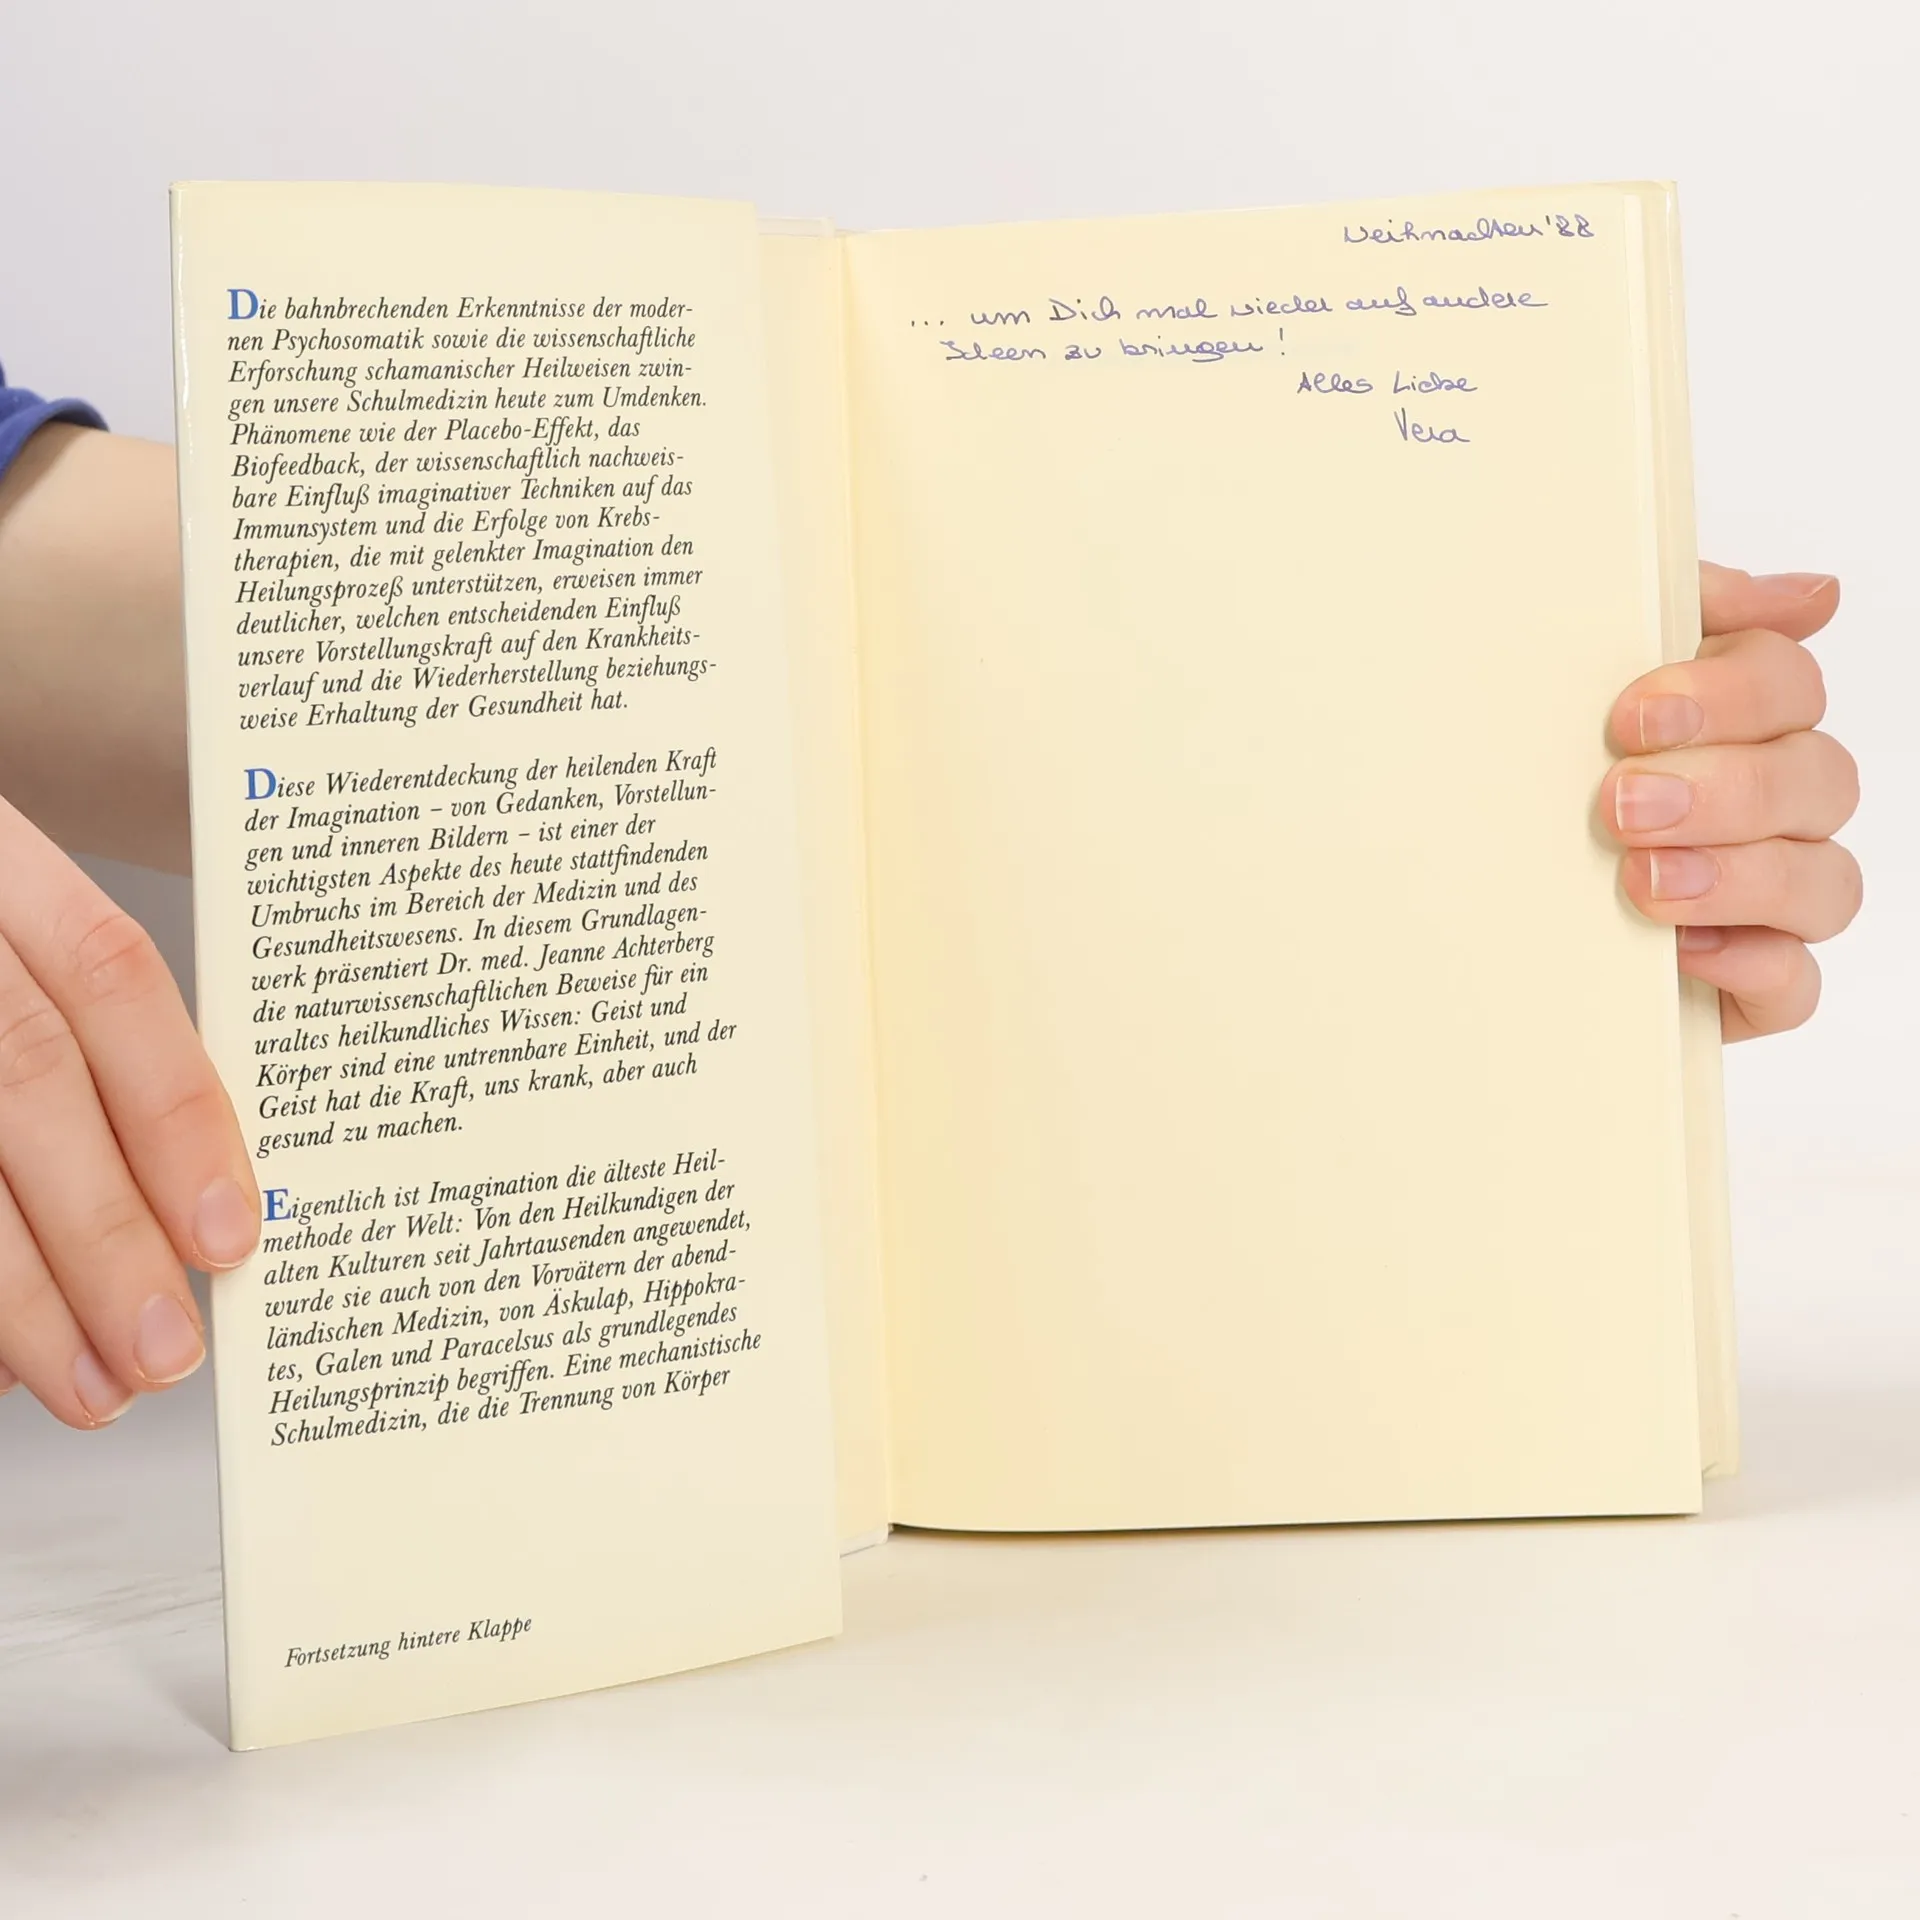 Die bahnbrechenden Erkenntnisse der moder-
nen Psychosomatik sowie die wissenschaftliche
Erforschung schamanischer Heilweisen zwin-
gen unsere Schulmedizin heute zum Umdenken.
Phänomene wie der Placebo-Effekt, das
Biofeedback, der wissenschaftlich nachweis-
bare Einfluß imaginativer Techniken auf das
Immunsystem und die Erfolge von Krebs-
therapien, die mit gelenkter Imagination den
Heilungsprozeß unterstützen, erweisen immer
deutlicher, welchen entscheidenden Einfluß
unsere Vorstellungskraft auf den Krankheits-
verlauf und die Wiederherstellung beziehungs-
weise Erhaltung der Gesundheit hat.
Diese Wiederentdeckung der heilenden Kraft
der Imagination – von Gedanken, Vorstellun-
gen und inneren Bildern – ist einer der
wichtigsten Aspekte des heute stattfindenden
Umbruchs im Bereich der Medizin und des
Gesundheitswesens. In diesem Grundlagen-
werk präsentiert Dr. med. Jeanne Achterberg
die naturwissenschaftlichen Beweise für ein
uraltes heilkundliches Wissen: Geist und
Körper sind eine untrennbare Einheit, und der
Geist hat die Kraft, uns krank, aber auch
gesund zu machen.
Eigentlich ist Imagination die älteste Heil-
methode der Welt: Von den Heilkundigen der
alten Kulturen seit Jahrtausenden angewendet,
wurde sie auch von den Vorvätern der abend-
ländischen Medizin, von Äskulap, Hippokra-
tes, Galen und Paracelsus als grundlegendes
Heilungsprinzip begriffen. Eine mechanistische
Schulmedizin, die die Trennung von Körper
Fortsetzung hintere Klappe
Weihnachten '88
... um Dich mal wieder auf andere
Ideen zu bringen!
Alles Liebe
Vera